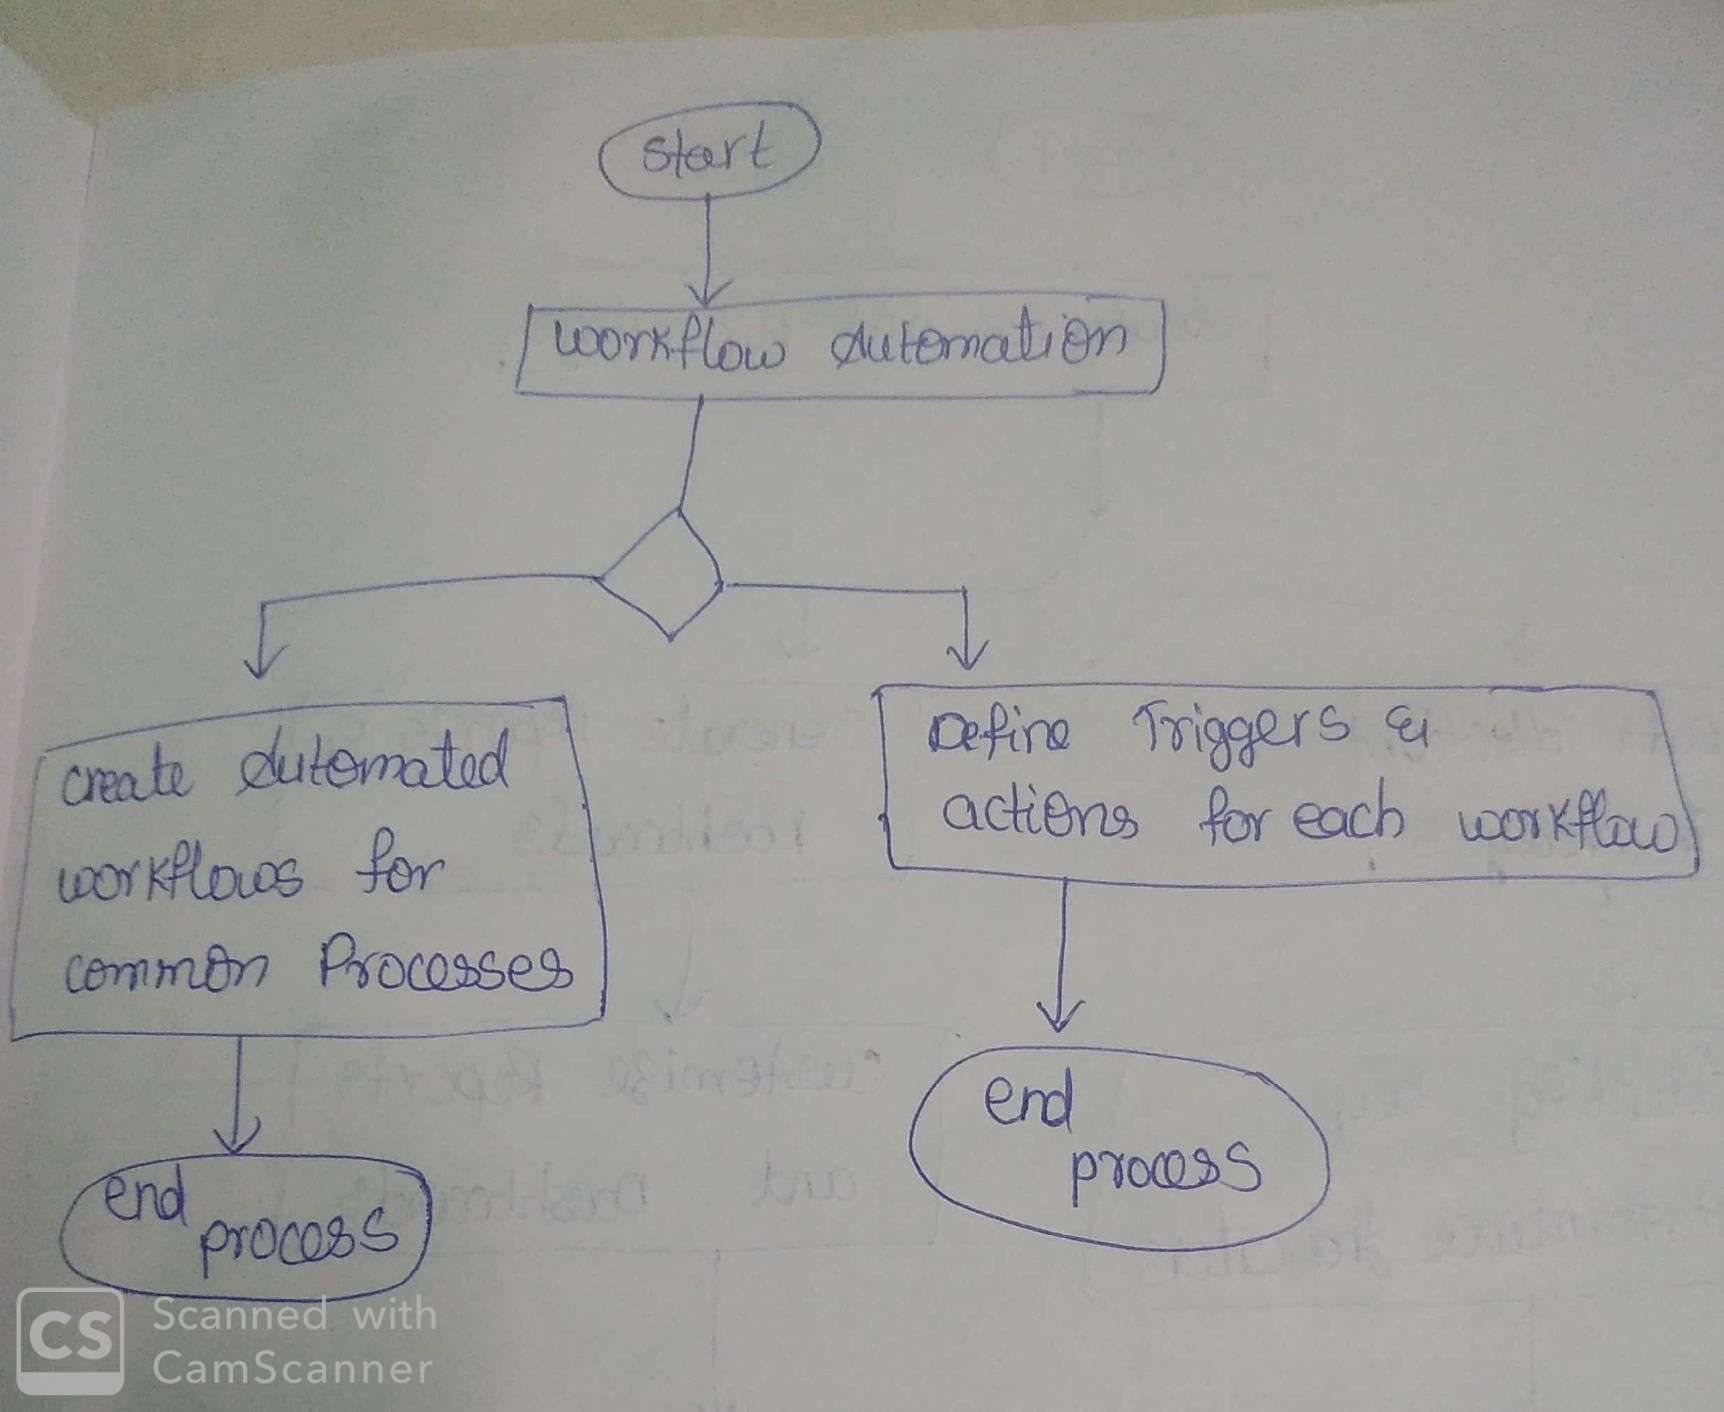 start
workflow Automation
create Automated
workflows for
common Processes
Define Triggers &
actions for each workflow
end
process
end
process
CS
Scanned with
CamScanner